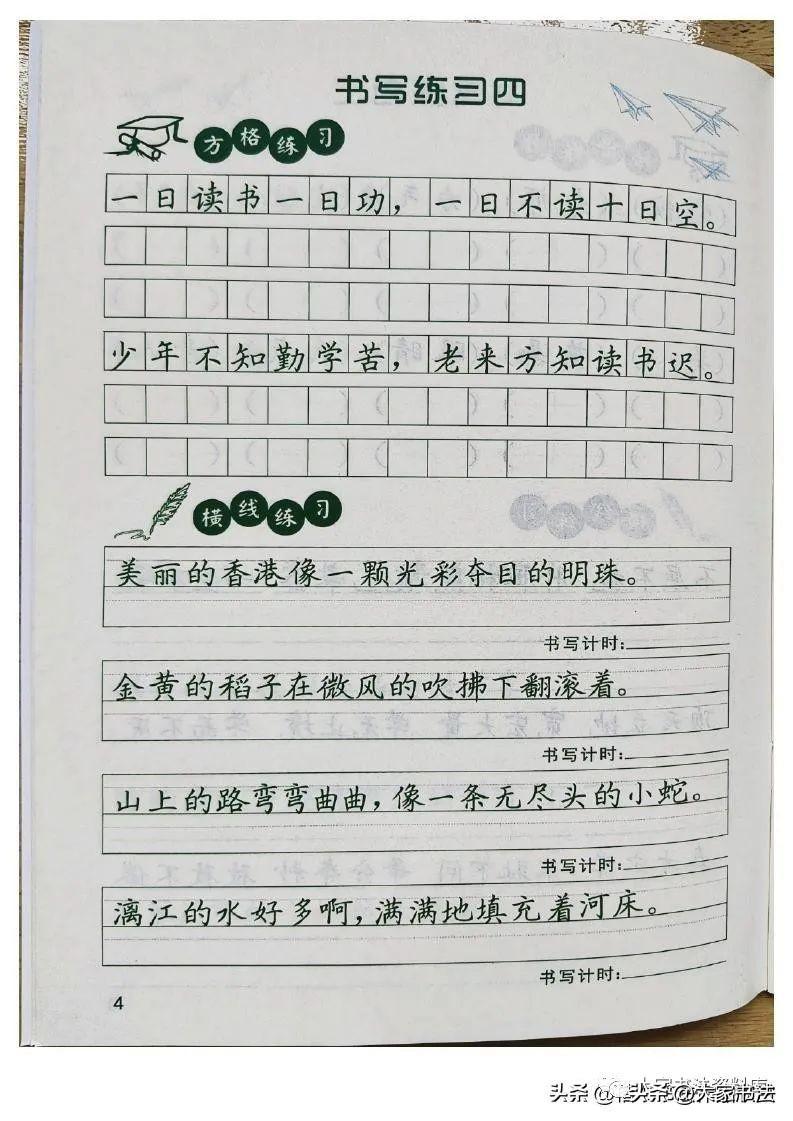 书写练习四
方格练习
一日读书一日功，一日不读十日空。
少年不知勤学苦，老来方知读书迟。
横线练习
美丽的香港像一颗光彩夺目的明珠。
书写计时:
金黄的稻子在微风的吹拂下翻滚着。
书写计时:
山上的路弯弯曲曲，像一条无尽头的小蛇。
书写计时:
漓江的水好多啊，满满地填充着河床。
书写计时:
4
头条@大家书法